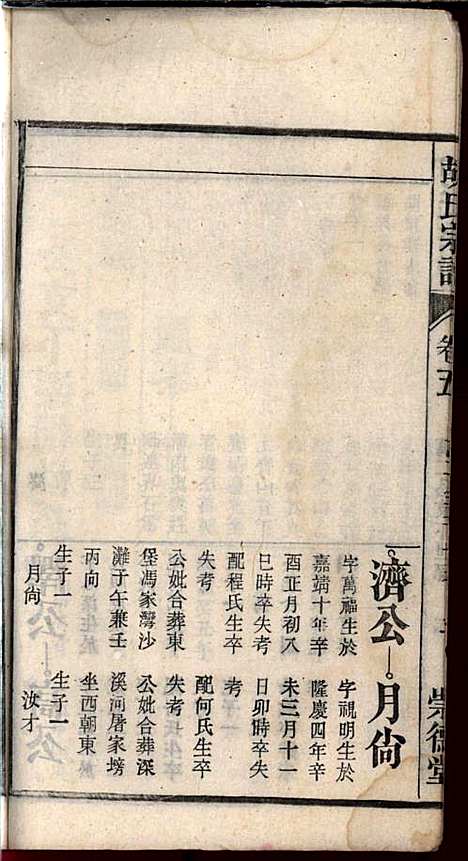 胡氏宗譜
卷五
崇德堂
濟公
字萬福生於
嘉靖十年辛
酉正月初八
巳時卒失考
配程氏生卒
失考
公妣合葬東
堡馮家灣沙
灘子午兼壬
丙向
生子一
月尙
月尙
字視明生於
隆慶四年辛
未三月十一
日卯時卒失
考
配何氏生卒
失考
公妣合葬深
溪河屠家塝
坐西朝東
生子一
汝才